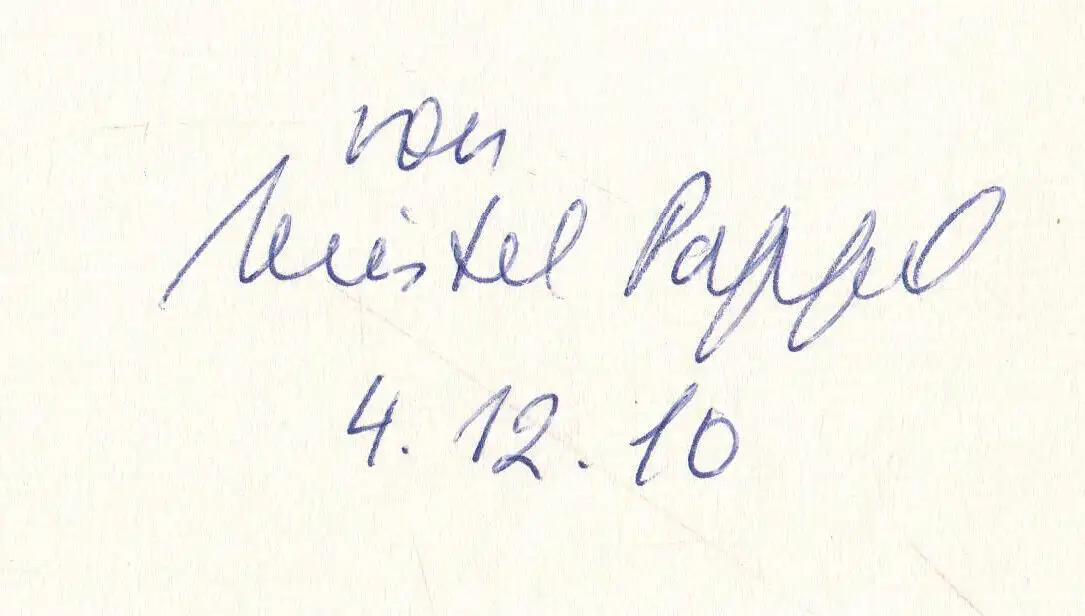 von
Christel Pappel
4.12.10